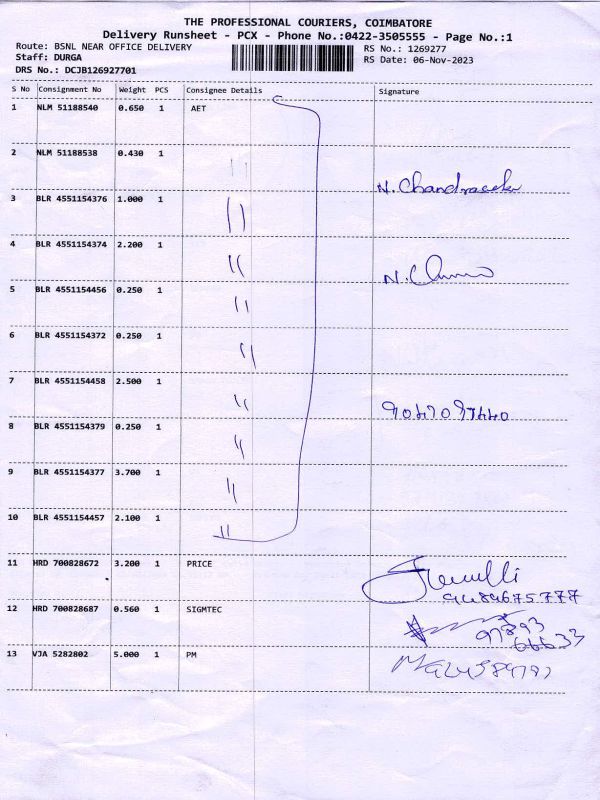 THE PROFESSIONAL COURIERS, COIMBATORE
Delivery Runsheet - PCX - Phone No.:0422-3505555 - Page No.:1
Route: BSNL NEAR OFFICE DELIVERY RS No.: 1269277
Staff: DURGA RS Date: 06-Nov-2023
DRS No.: DCJB126927701
S No Consignment No Weight PCS Consignee Details Signature
1 NLM 51188540 0.650 1 AET
2 NLM 51188538 0.430 1 "
N. Chandrasekar
3 BLR 4551154376 1.000 1 "
4 BLR 4551154374 2.200 1 "
5 BLR 4551154456 0.250 1 "
6 BLR 4551154372 0.250 1 "
7 BLR 4551154458 2.500 1 "
8 BLR 4551154379 0.250 1 "
9 BLR 4551154377 3.700 1 "
10 BLR 4551154457 2.100 1 "
11 HRD 700828672 3.200 1 PRICE
12 HRD 700828687 0.560 1 SIGMTEC
13 VJA 5282802 5.000 1 PM